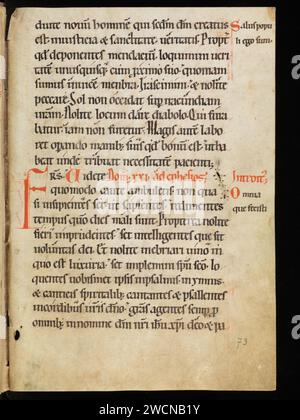 duite novu hominem qui sedm dm creatus
est iniusticia & sanctitate veritatis. Propt
qd deponentes mendaciu loquimini verita
tem unusquisq cum proximo suo quoniam
sumus invice membra. Irascimini & nolite
peccare. Sol non occidat sup iracundiam
vram. Nolite locum dare diabolo. Qui fura
batur iam non furetur. Magis aute labo
ret opando manib; suis qd bonu est ut ha
beat unde tribuat necessitate pacienti.
Frs. Videte Dom. xxi. ad ephesios.
quomodo caute ambuletis non qua
si insipientes set ut sapientes redimentes
tempus quo dies mali sunt. Propterea nolite
fieri inprudentes set intelligentes que sit
voluntas dei. Et nolite inebriari vino in
quo est luxuria set implemini spu sco lo
quentes vobismet ipsis in psalmis & ymnis
& canticis spiritalib; cantantes & psallentes
in cordibus vris dno gras agentes semp p
omnib; in nomine dni nri ihu xpi deo & pa
Salus popu
li ego sum.
Introitus
Omnia
que fecisti
73
alamy
Image ID: 2WCNB1Y
www.alamy.com